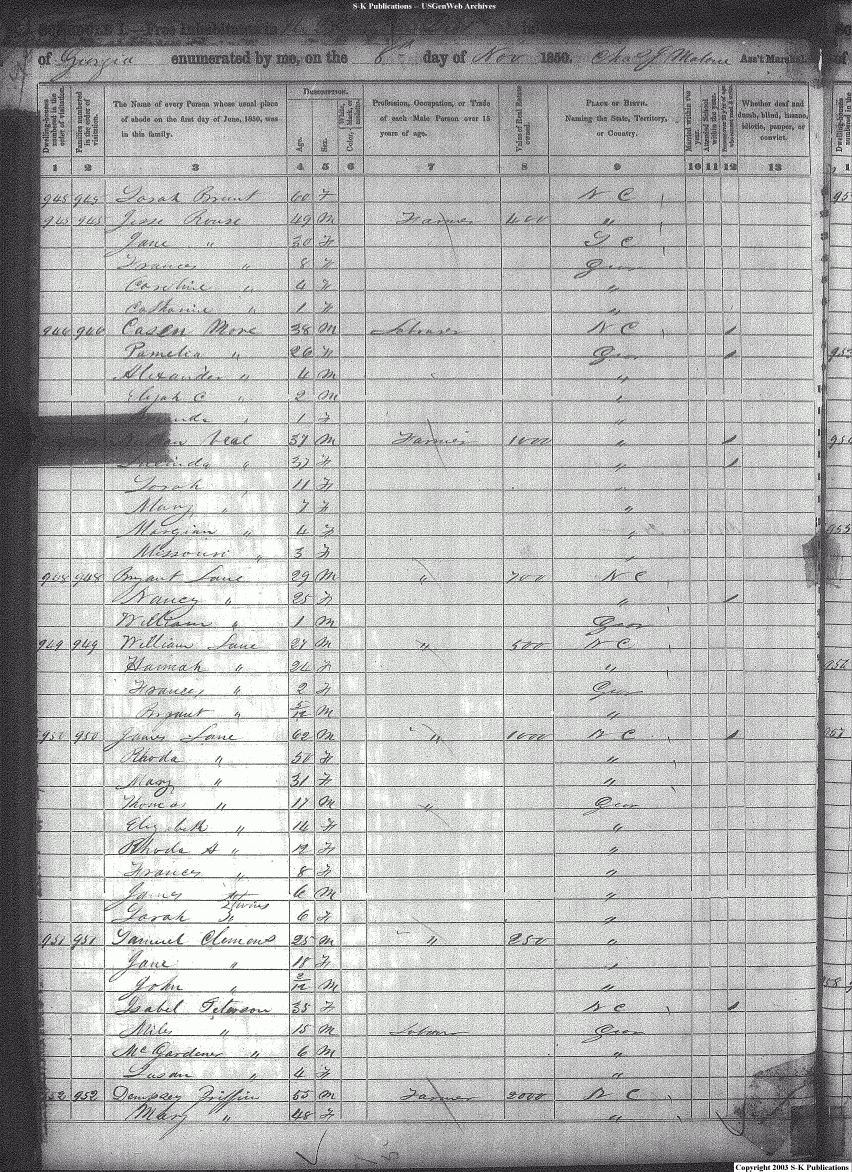 S-K Publications – USGenWeb Archives
of Georgia enumerated by me, on the 8th day of Nov 1850. Chas J Malone Ass't Marshal.
Dwelling-houses numbered in the order of visitation. Families numbered in the order of visitation. The Name of every Person whose usual place of abode on the first day of June, 1850, was in this family. Description. Age. Sex. Color, White, black, or mulatto. Profession, Occupation, or Trade of each Male Person over 15 years of age. Value of Real Estate owned. Place of Birth. Naming the State, Territory, or Country. Married within the year. Attended School within the year. Whether deaf and dumb, blind, insane, idiotic, pauper, or convict.
1 2 3 4 5 6 7 8 9 10 11 12 13
945 945 Sarah Bryant 60 F N C
945 945 Jesse Rouse 49 M Farmer 400 "
Jane " 30 F S C
Frances " 8 F Geor
Caroline " 4 F "
Catharine " 1 F "
946 946 Casen More 38 M Laborer N C
Pamelia " 26 F Geor
Alexander " 4 M "
Elijah C " 2 M "
1 F
Veal 37 M Farmer 1000 "
Lucinda " 37 F "
Sarah " 11 F
Mary " 7 F "
Morgian " 4 F "
Missouri " 3 F "
948 948 Bryant Lane 29 M " 700 N C
Nancy " 25 F "
William " 1 M Geor
949 949 William Lane 27 M " 500 N C
Hannah " 24 F "
Frances " 2 F Geor
Bryant " 5/12 M "
950 950 James Lane 62 M " 1000 N C
Rhoda " 50 F "
Mary " 31 F "
Thomas " 17 M " Geor
Elizabeth " 14 F "
Rhoda A " 12 F "
Frances " 8 F "
James " 6 M "
twins
Sarah " 6 F "
951 951 Samuel Clemons 25 M " 250 "
Jane " 18 F "
John " 2/12 M "
Isabel Peterson 35 F N C
Miles " 15 M Laborer Geor
McGardener " 6 M "
Susan " 4 F "
952 952 Dempsey Griffin 55 M Farmer 2000 N C
Mary " 48 F "
Copyright 2003 S-K Publications